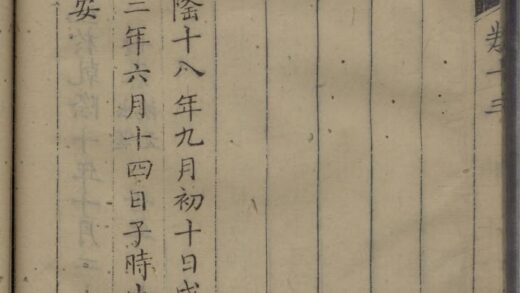 卷十三
隆十八年九月初十日
三年六月十四日子時
安